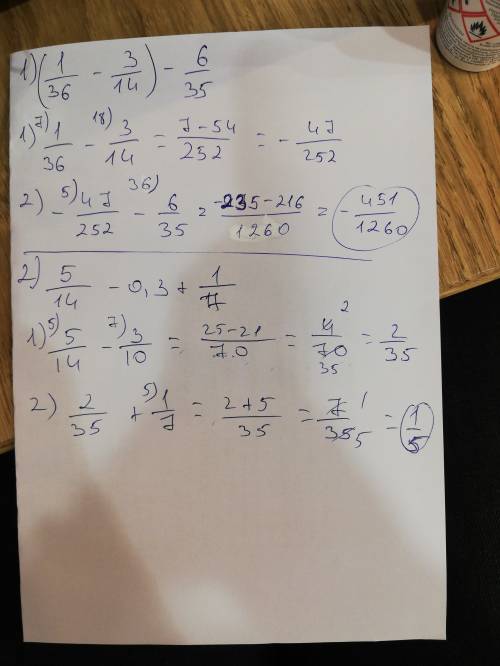 1) (1/36 - 3/14) - 6/35
1) 7) 1/36 - 18) 3/14 = 7-54/252 = - 47/252
2) - 5) 47/252 - 36) 6/35 = -235-216/1260 = - 451/1260
2) 5/14 - 0,3 + 1/7
1) 5) 5/14 - 7) 3/10 = 25-21/70 = 4 2/70 35 = 2/35
2) 2/35 + 5) 1/7 = 2+5/35 = 7 1/35 5 = 1/5